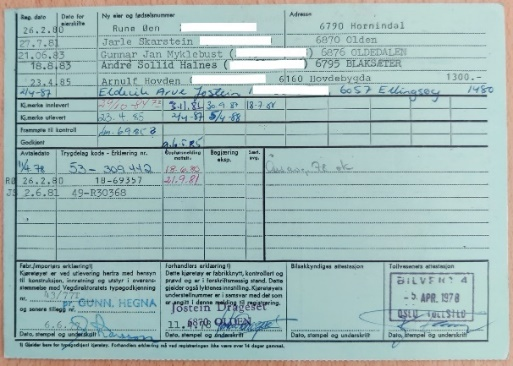 Reg. dato Dato for eierskifte Ny eier og fødselsnummer Adresse
26.2.80 Rune Øen 6790 Hornindal
27.7.81 Jarle Skarstein 6870 Olden
21.06.83 Gunnar Jan Myklebust ( 6876 OLDEDALEN
18.8.83 André Sollid Halnes ( 6795 BLAKSÆTER
23.4.85 Arnulf Hovden 6160 Hovdebygda 1300.-
2/4-87 Elderik Arve Jostein 6057 Ellingsøy 1480
Kj.merke innlevert 3-11.86 30.9.87 18.7.88
Kj.merke utlevert 23.4.85 2/4-87 5/4-88
Fremmøte til kontroll
Godkjent
Avtaledato Trygdelag kode - Erklæring nr. Begjæring eksp.
53-309442 18.6.80
RØ 26.2.80 18-69357 21.9.81
JS 2.6.81 49-R30368
Fabr./importørs erklæring1)
Kjøretøyet er ved utlevering hertra med hensyn til konstruksjon, innretning og utstyr i overensstemmelse med Vegdirektoratets typegodkjenning
GUNN. HEGNA
og senere tillegg nr.
Dato, stempel og underskrift
Forhandlers erklæring
Dette kjøretøy er fabrikknytt, kontrollert og prøvd og er i forskriftsmessig stand. Dette gjelder også lyktenes innstilling. Kjøretøyets understellsnummer er i samsvar med det som er angitt i denne melding til registrering.
Jostein Drageset
6870 OLDEN
Dato, stempel og underskrift
Bilsakkyndiges attestasjon
Dato, stempel og underskrift
Tollvesenets attestasjon
BILVENT 4
-5. APR. 1978
OSLO TOLLSTED
Dato, stempel og underskrift
1) Gjelder bare for typegodkjent kjøretøy. Forhandlers erklæring må ved registreringen ikke være over 14 dager gammel.